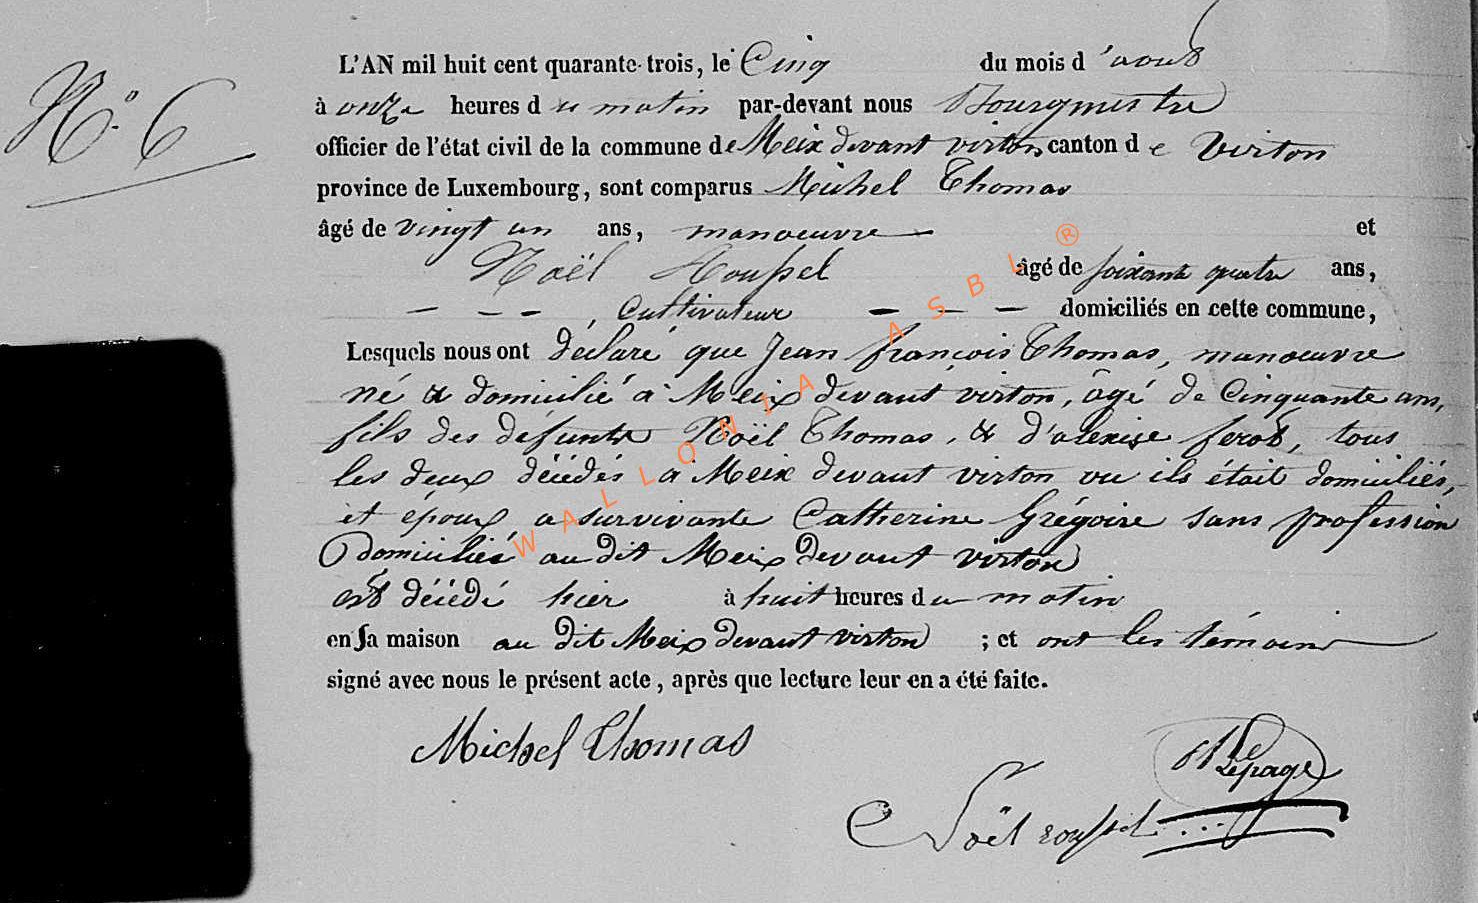 N.° 6
L'AN mil huit cent quarante-trois, le Cinq du mois d'aout
à onze heures du matin par-devant nous Bourgmestre
officier de l'état civil de la commune de Meix devant virton canton de Virton
province de Luxembourg, sont comparus Michel Thomas
âgé de vingt un ans, manoeuvre et
Noël Roussel âgé de soixante quatre ans,
— — — , Cultivateur — — — domiciliés en cette commune,
Lesquels nous ont déclaré que Jean françois Thomas, manoeuvre
né & domicilié à Meix devant virton, âgé de Cinquante ans,
fils des défunts Noël Thomas, & d'alexise ferot, tous
les deux décédés à Meix devant virton ou ils était domiciliés,
et époux a survivante Catherine Grégoire sans profession
domiciliés au dit Meix devant virton
est décédé hier à huit heures du matin
en sa maison au dit Meix devant virton ; et ont les témoins
signé avec nous le présent acte, après que lecture leur en a été faite.
Michel Thomas
Lepage
Noël roussel
WALLONIA ASBL ®